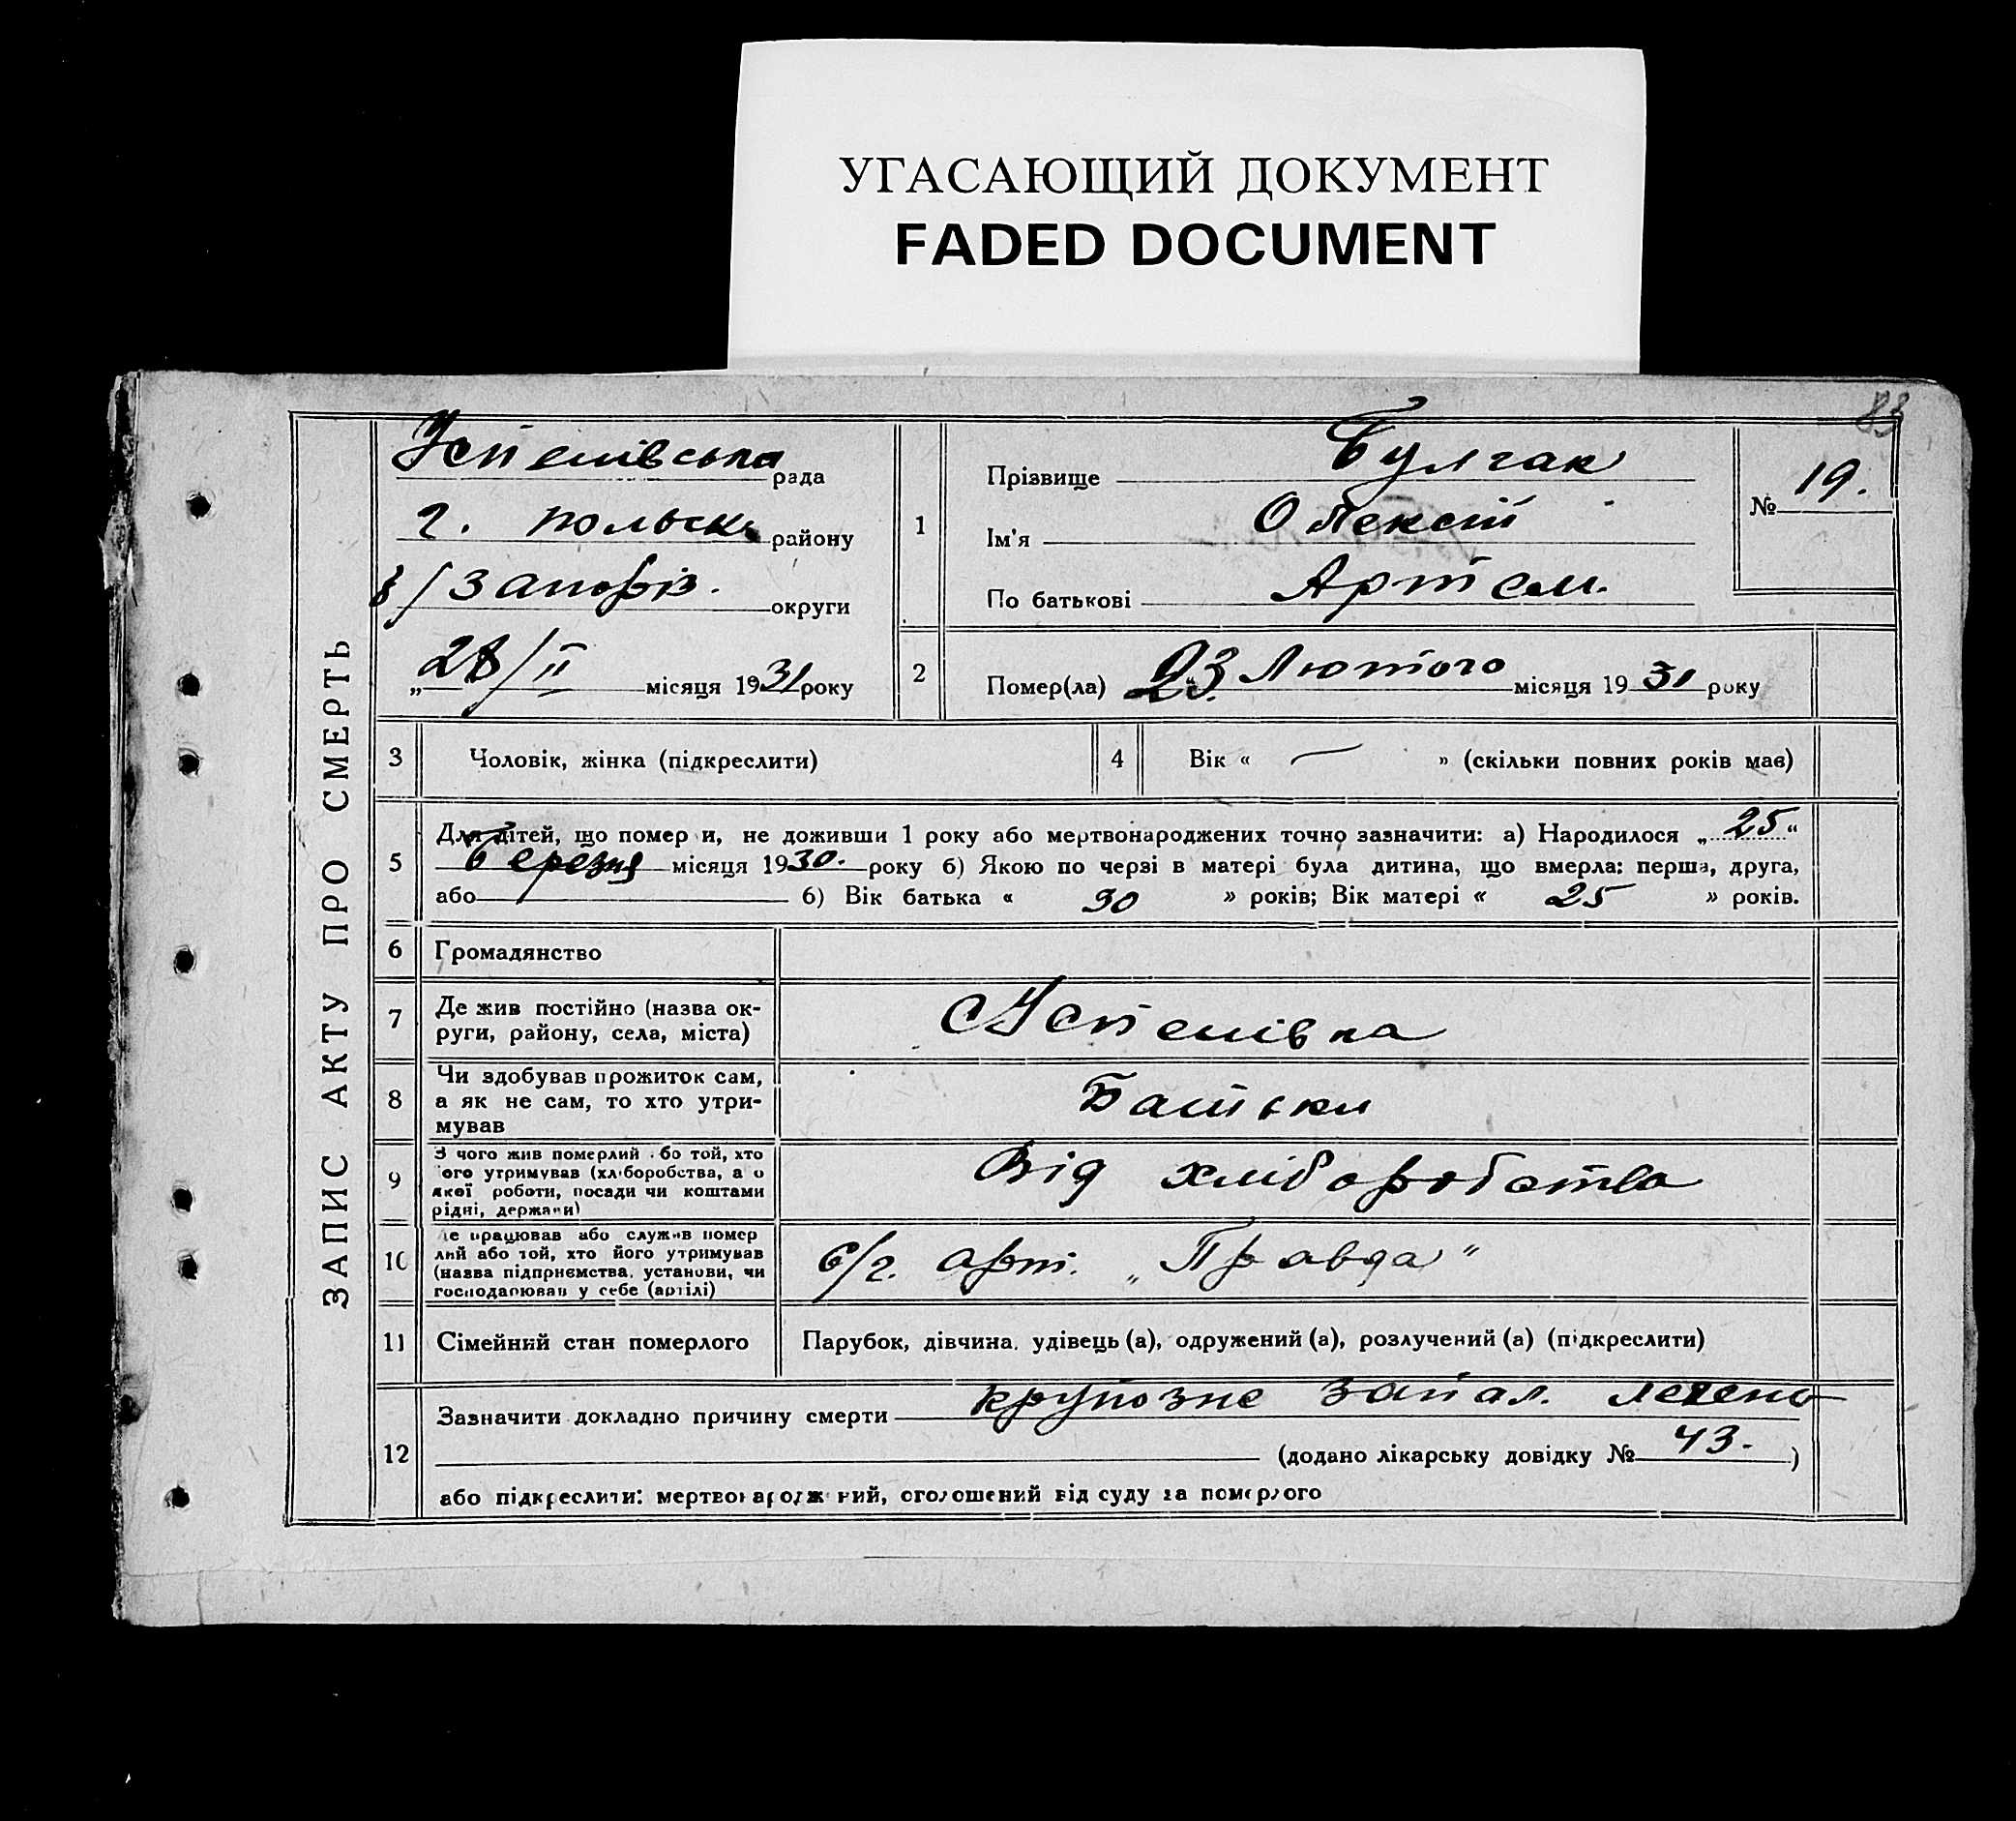 УГАСАЮЩИЙ ДОКУМЕНТ
FADED DOCUMENT
83
ЗАПИС АКТУ ПРО СМЕРТЬ
Успенівська рада
г. польськ району
Запоріз. округи
„28/II місяця 1931 року
1
Прізвище Булгак
Ім'я Олексій
По батькові Артем.
№ 19.
2
Помер(ла) 23 Лютого місяця 1931 року
3 Чоловік, жінка (підкреслити)
4 Вік « — » (скільки повних років має)
5
Для дітей, що помер и, не доживши 1 року або мертвонароджених точно зазначити: а) Народилося „25“
Березня місяця 1930. року б) Якою по черзі в матері була дитина, що вмерла: перша, друга,
або 6) Вік батька « 30 » років; Вік матері « 25 » років.
6 Громадянство
7
Де жив постійно (назва ок-
руги, району, села, міста)
С Успенівка
8
Чи здобував прожиток сам,
а як не сам, то хто утри-
мував
Батьки
9
З чого жив померлий бо той, хто
ого утримував (хліборобства, а о
якої роботи, посади чи коштами
рідні, держави)
Від хліборобства
10
е працював або служив помер
лий або той, хто його утримував
(назва підприємства, установи, чи
господарював у себе (артілі)
с/г. арт. „Правда"
11 Сімейний стан померлого
Парубок, дівчина, удівець (а), одружений (а), розлучений (а) (підкреслити)
12
Зазначити докладно причину смерти крупозне запал. легень
(додано лікарську довідку № 43. )
або підкреслити: мертвонароджений, оголошений від суду за померлого